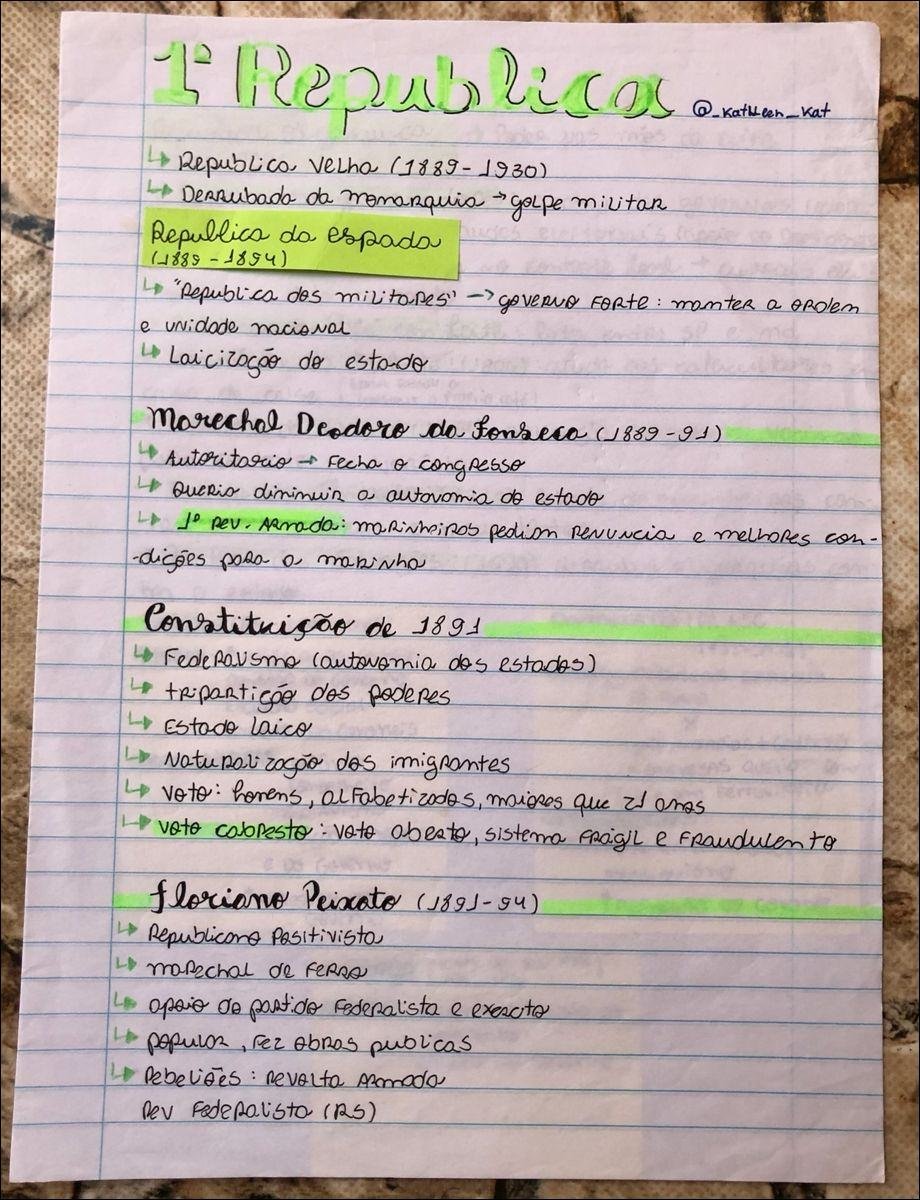 1ª Republica @_Kathleen_Kat
↳ Republica Velha (1889-1930)
↳ Derrubada da monarquia → golpe militar
Republica da espada
(1889-1894)
↳ "Republica dos militares" → governo forte: manter a ordem
e unidade nacional
↳ Laicização do estado
Marechal Deodoro da Fonseca (1889-91)
↳ Autoritario → Fecha o congresso
↳ Queria diminuir a autonomia do estado
↳ 1ª Rev. Armada: marinheiros pediam renuncia e melhores con-
-dições para a marinha
Constituição de 1891
↳ Federalismo (autonomia dos estados)
↳ tripartição dos poderes
↳ Estado laico
↳ Naturalização dos imigrantes
↳ Voto: homens, alfabetizados, maiores que 21 anos
↳ voto cabresto: voto aberto, sistema frágil e fraudulento
Floriano Peixoto (1891-94)
↳ Republicano Positivista
↳ marechal de ferro
↳ apoio do partido Federalista e exercito
↳ popular, fez obras publicas
↳ Rebeliões: Revolta Armada
Rev Federalista (RS)